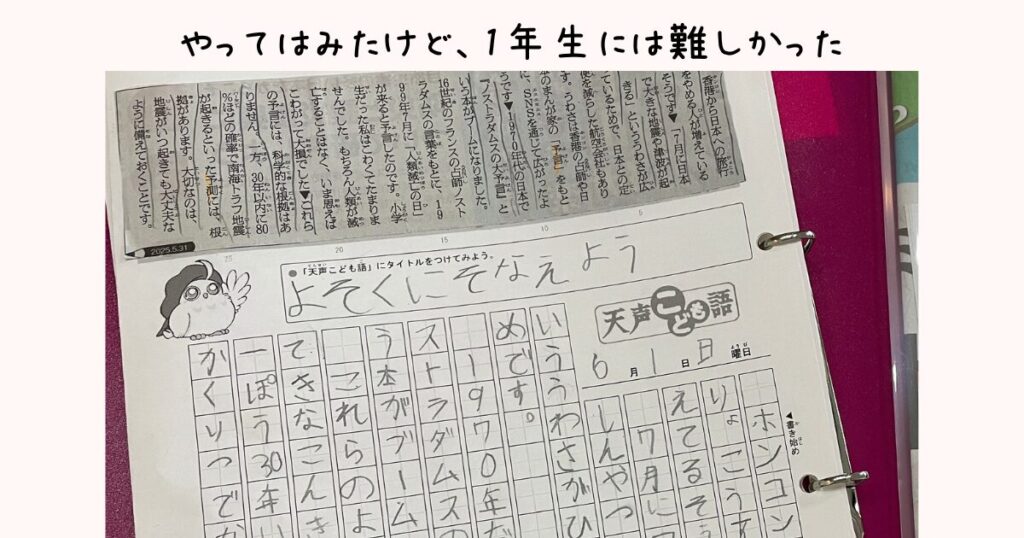 やってはみたけど、1年生には難しかった
香港から日本への旅行
をやめる人が増えている
そうです▼「7月に日本
で大きな地震や津波が起
きる」といううわさが広
ているためで、日本との定
便を減らした航空会社もあり
す。うわさは香港の占師や日
本のまんが家の「予言」をもと
に、SNSを通じて広がったよ
うです▼1970年代の日本で
『ノストラダムスの大予言』と
いう本がブームになりました。
16世紀のフランスの占師ノスト
ラダムスの言葉をもとに、19
99年7月に「人類滅亡の日」
が来ると予言したのです。小学
生だった私はこわくてたまりま
せんでした。もちろん人類が滅
亡することはなく、いま思えば
こわがって大損でした▼これら
の予言には、科学的な根拠はあ
りません。一方、30年以内に80
%ほどの確率で南海トラフ地震
が起きるといった予測には、根
拠があります。大切なのは、
地震がいつ起きても大丈夫な
ように備えておくことです。
2025.5.31
5
10
15
20
25
●「天声こども語」にタイトルをつけてみよう。
よそくにそなえよう
天声こども語
6月1日日曜日
◀書き始め
ホンコン
りょこう
えてるそう
7月に
しんやつ
いううわさがひ
めです。
1970年だ
ストラダムスの
う本がブーム
これらのよ
てきなこんき
一ぽう30年い
かくりつでか